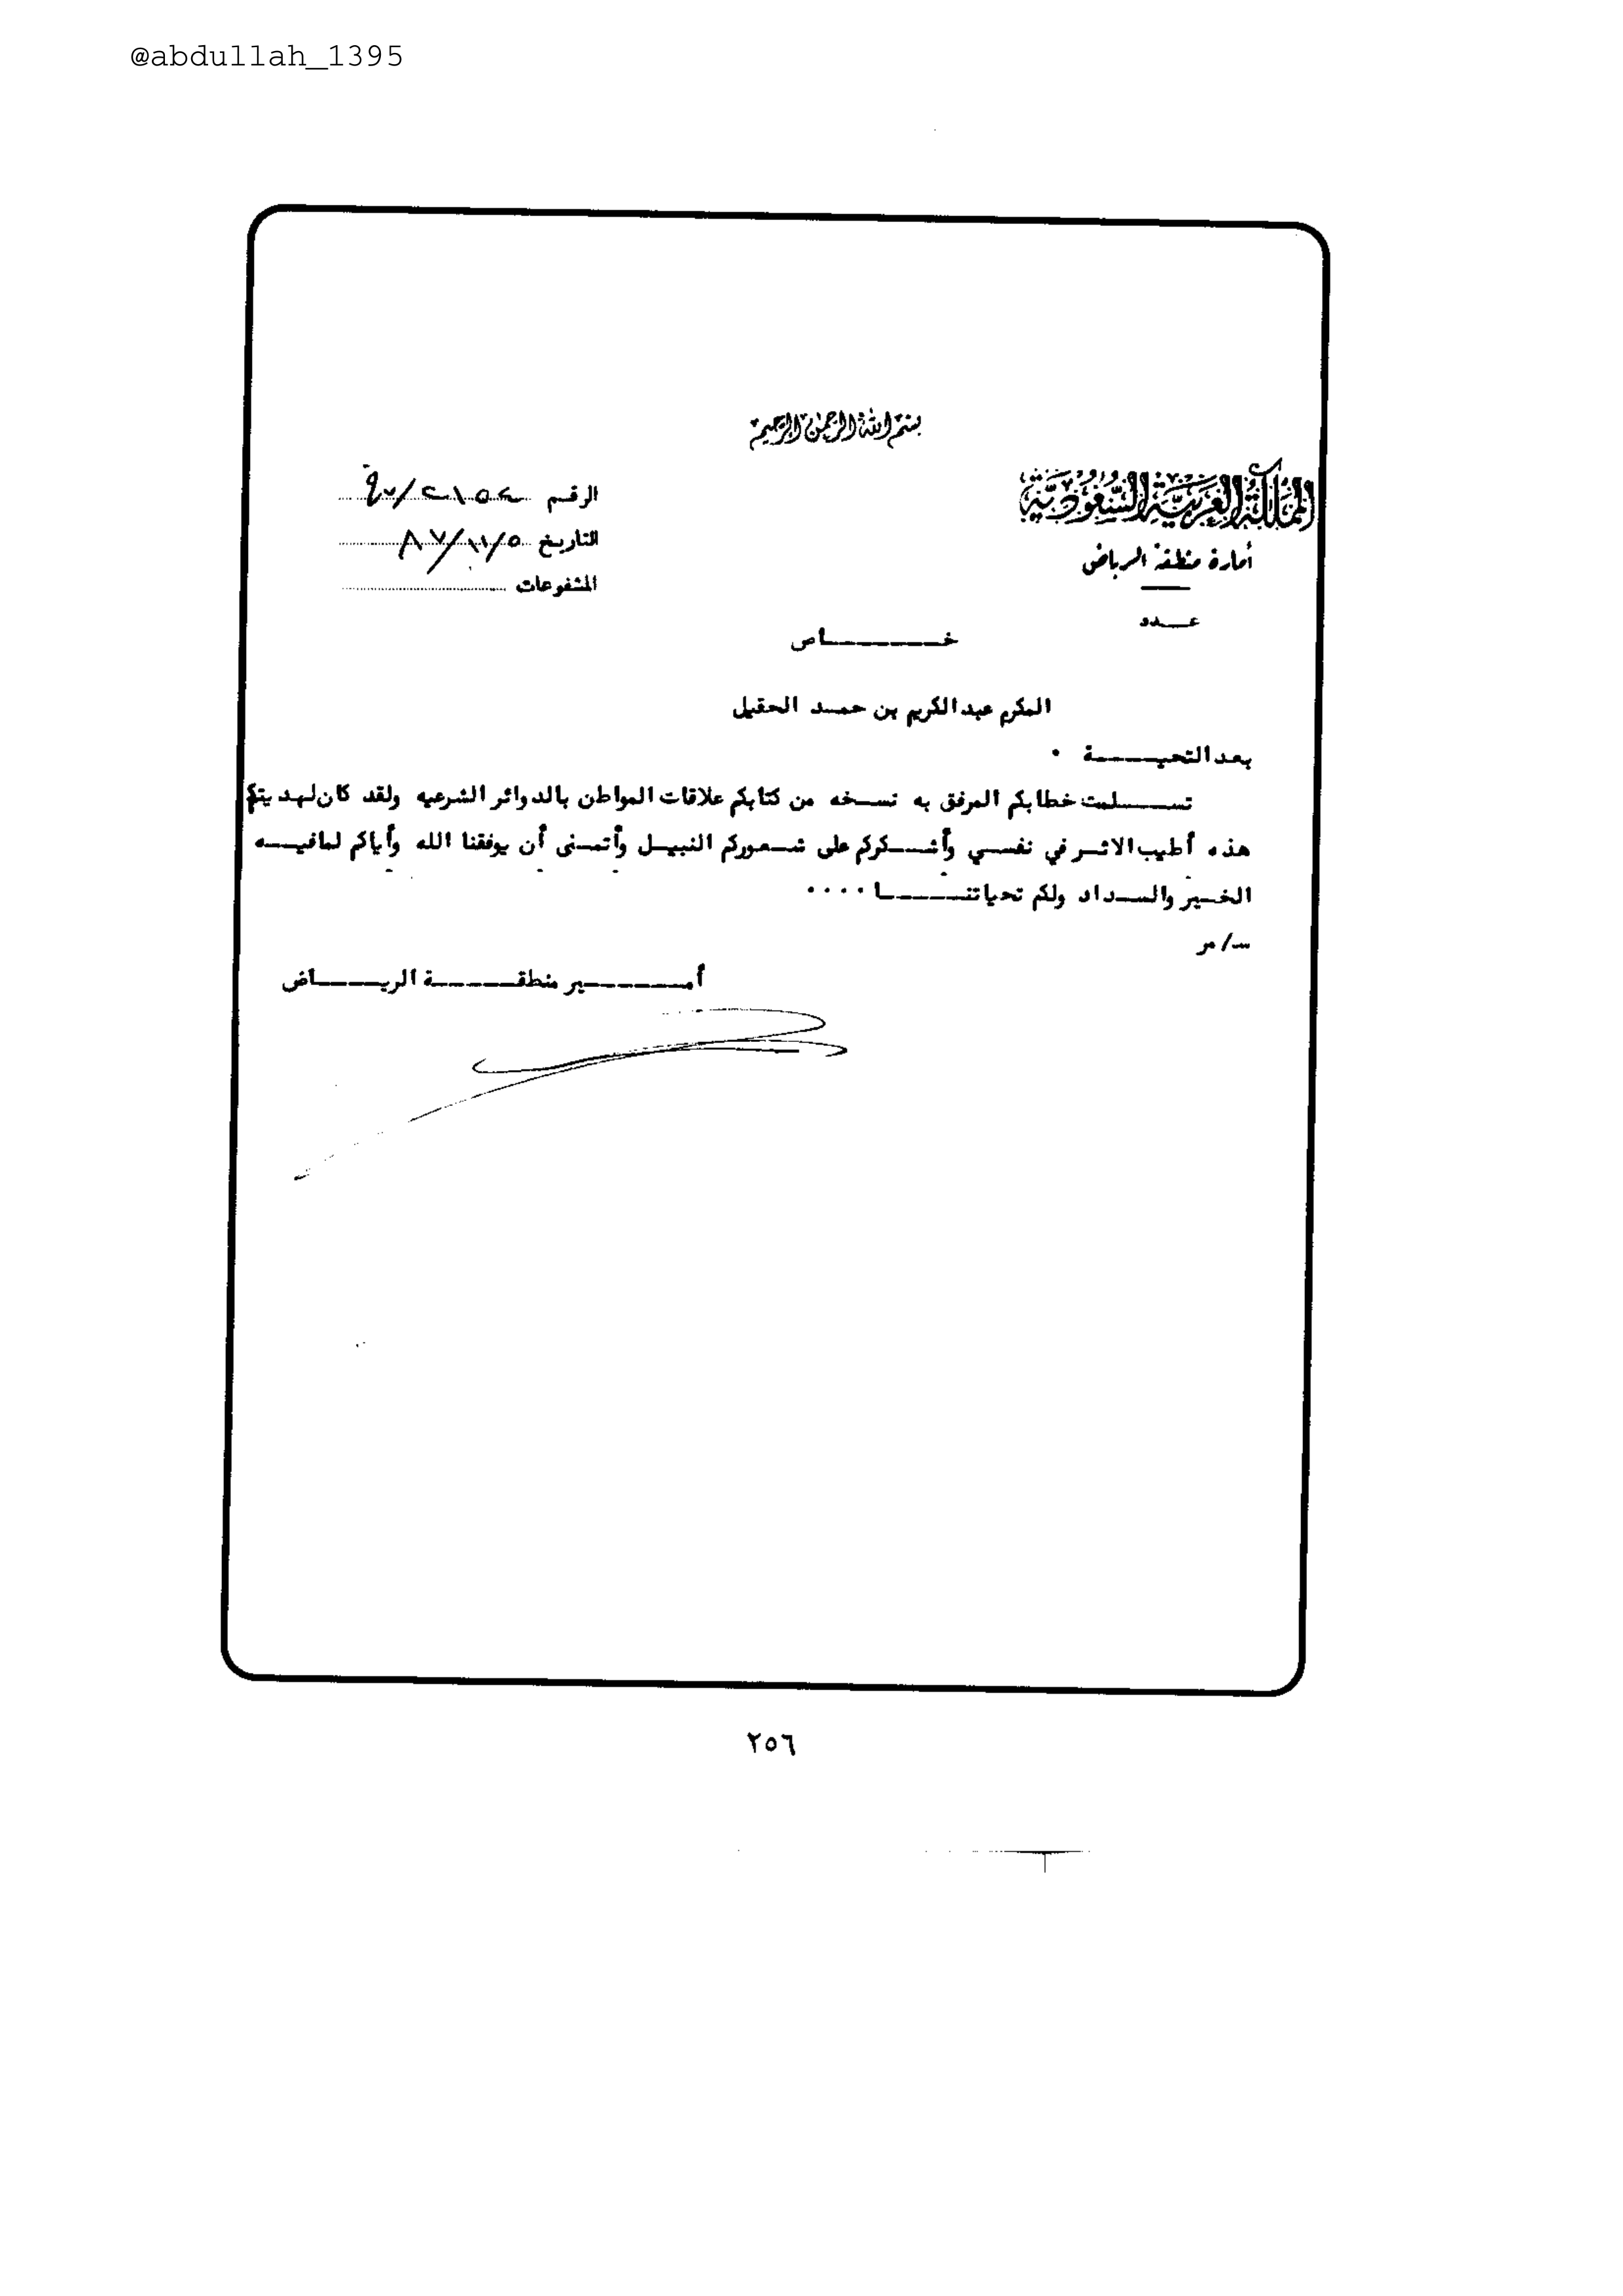 @abdullah_1395
بسم الله الرحمن الرحيم
المملكة العربية السعودية
أمارة منطقة الرياض
عـــدد
الرقم
التاريخ ٨٧/١١/٥
المشفوعات
خـــــــاص
المكرم عبد الكريم بن حمـد الحقيل
بعد التحيـــــة .
تســـــلمت خطابكم المرفق به نسـخه من كتابكم علاقات المواطن بالدوائر الشرعيه ولقد كان لهديتكم
هذه أطيب الاثـر في نفسـي وأشـكركم على شـعوركم النبيـل وأتمـنى أن يوفقنا الله وأياكم لمافيــه
الخـير والسـداد ولكم تحياتنـــــا ....
سـ/مر
أمـــــــير منطقــــــة الريــــــاض
٢٥٦